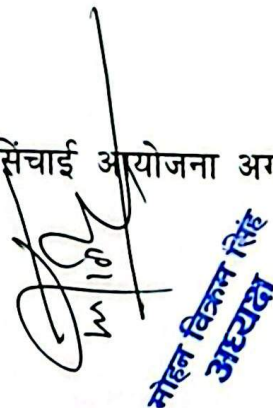 सिंचाई आयोजना अग
मोहन विक्रम सिंह
अध्यक्ष